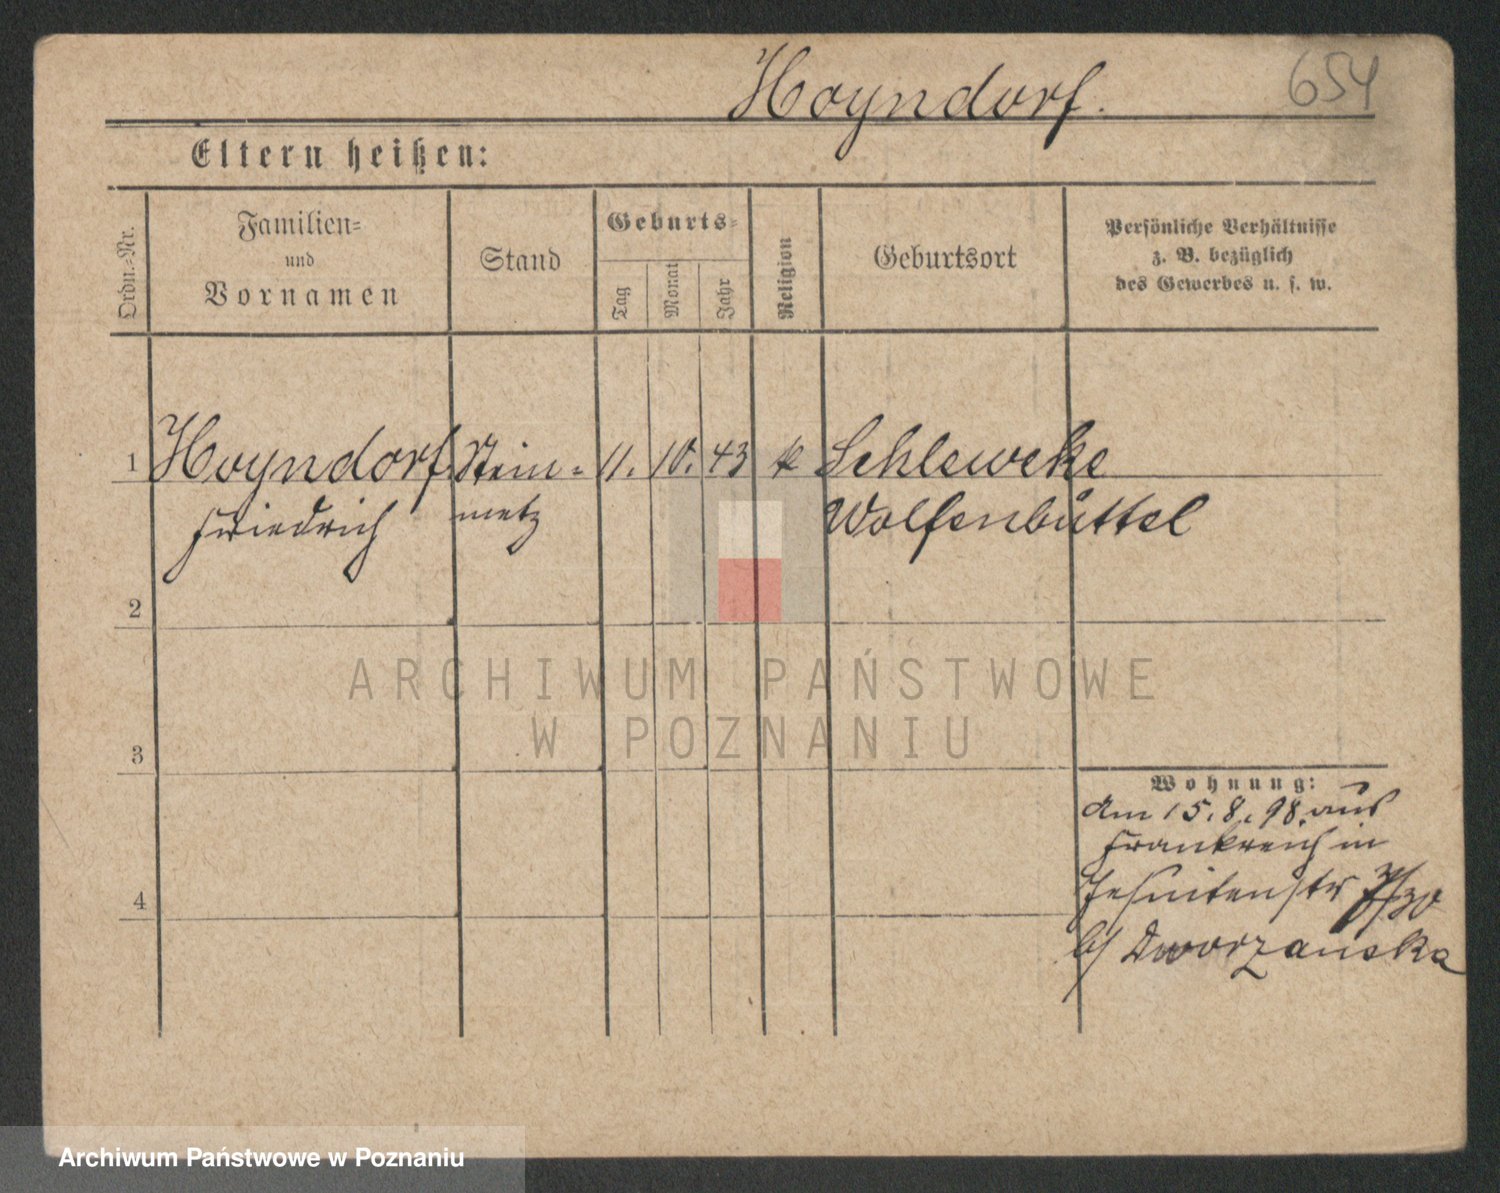 Hoyndorf.
654
Eltern heißen:
Ordn.-Nr.
Familien-
und
Vornamen
Stand
Geburts-
Tag
Monat
Jahr
Religion
Geburtsort
Persönliche Verhältnisse
z. B. bezüglich
des Gewerbes u. s. w.
1 Hoyndorf Stein- 11. 10. 43 k Schleweke
Friedrich metz Wolfenbüttel
2
3
4
Wohnung:
Am 15.8.98. aus
Frankreich in
Jesuitenstr 7/30
b/ Dworzanska
ARCHIWUM PAŃSTWOWE
W POZNANIU
Archiwum Państwowe w Poznaniu